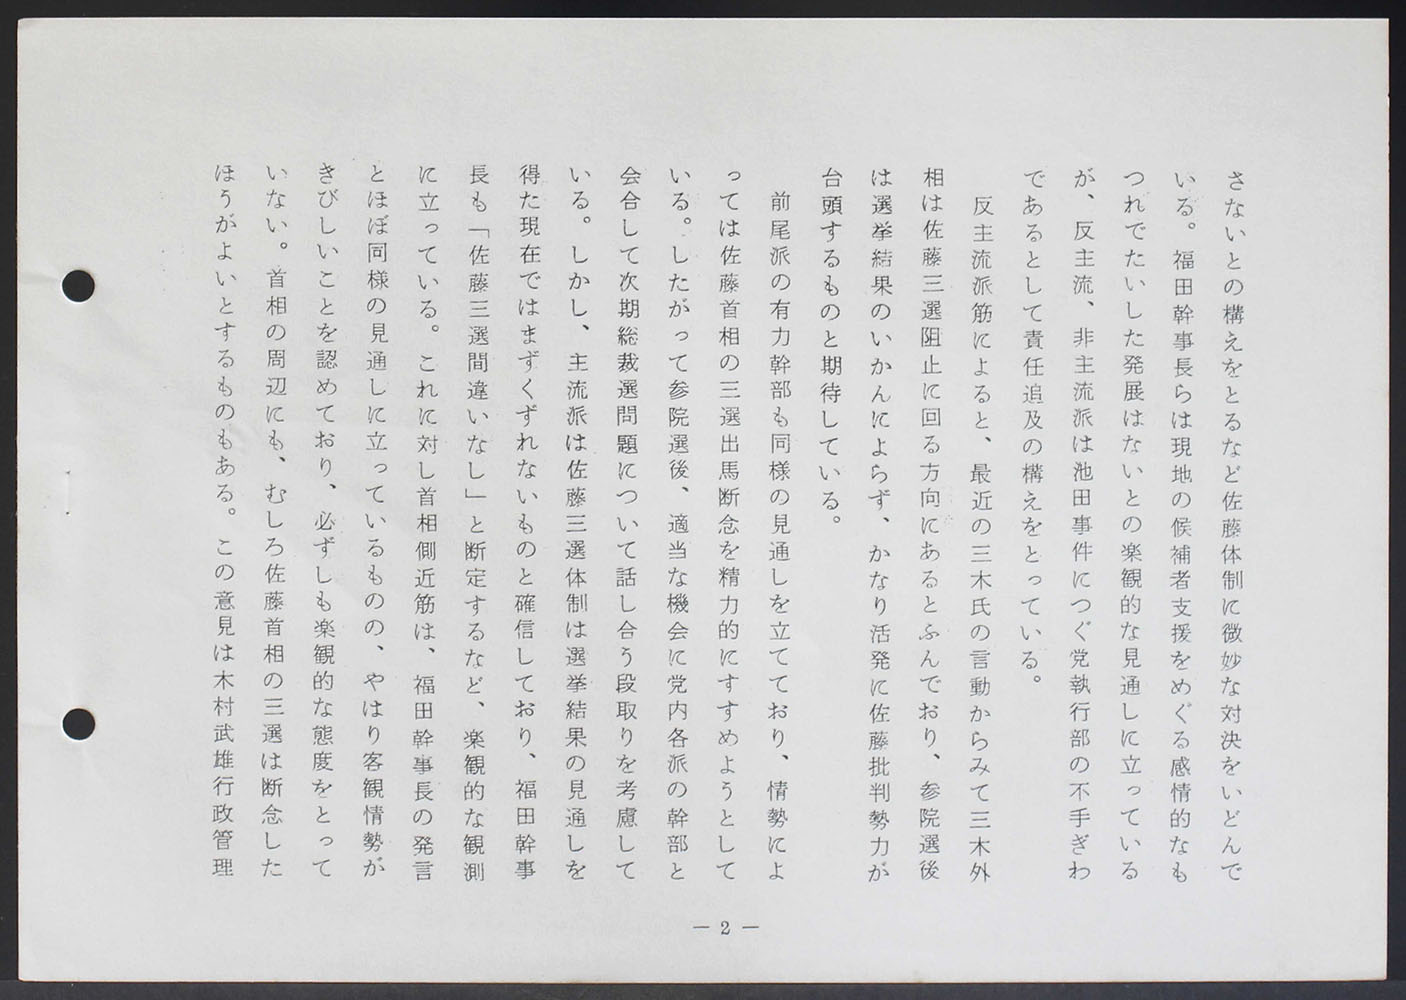 さないとの構えをとるなど佐藤体制に微妙な対決をいどんで
いる。福田幹事長らは現地の候補者支援をめぐる感情的なも
つれでたいした発展はないとの楽観的な見通しに立っている
が、反主流、非主流派は池田事件につぐ党執行部の不手ぎわ
であるとして責任追及の構えをとっている。
反主流派筋によると、最近の三木氏の言動からみて三木外
相は佐藤三選阻止に回る方向にあるとふんでおり、参院選後
は選挙結果のいかんによらず、かなり活発に佐藤批判勢力が
台頭するものと期待している。
前尾派の有力幹部も同様の見通しを立てており、情勢によ
っては佐藤首相の三選出馬断念を精力的にすすめようとして
いる。したがって参院選後、適当な機会に党内各派の幹部と
会合して次期総裁選問題について話し合う段取りを考慮して
いる。しかし、主流派は佐藤三選体制は選挙結果の見通しを
得た現在ではまずくずれないものと確信しており、福田幹事
長も「佐藤三選間違いなし」と断定するなど、楽観的な観測
に立っている。これに対し首相側近筋は、福田幹事長の発言
とほぼ同様の見通しに立っているものの、やはり客観情勢が
きびしいことを認めており、必ずしも楽観的な態度をとって
いない。首相の周辺にも、むしろ佐藤首相の三選は断念した
ほうがよいとするものもある。この意見は木村武雄行政管理
— 2 —